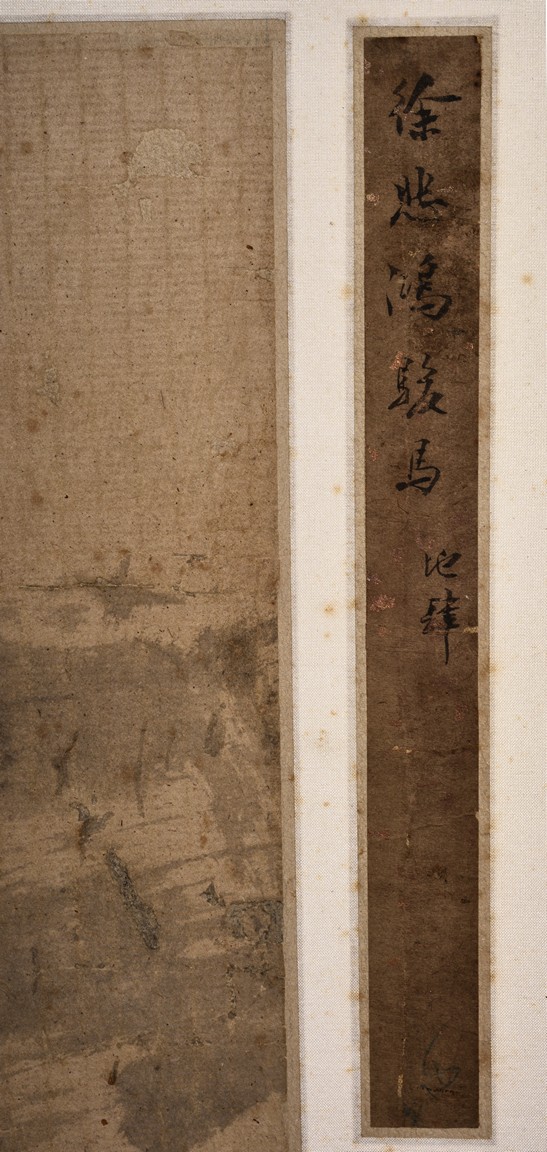 徐悲鴻駿馬
地肆